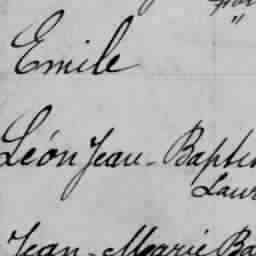 "
Emile
Léon Jean-Bapti
Laur
Jean-Marie Ba